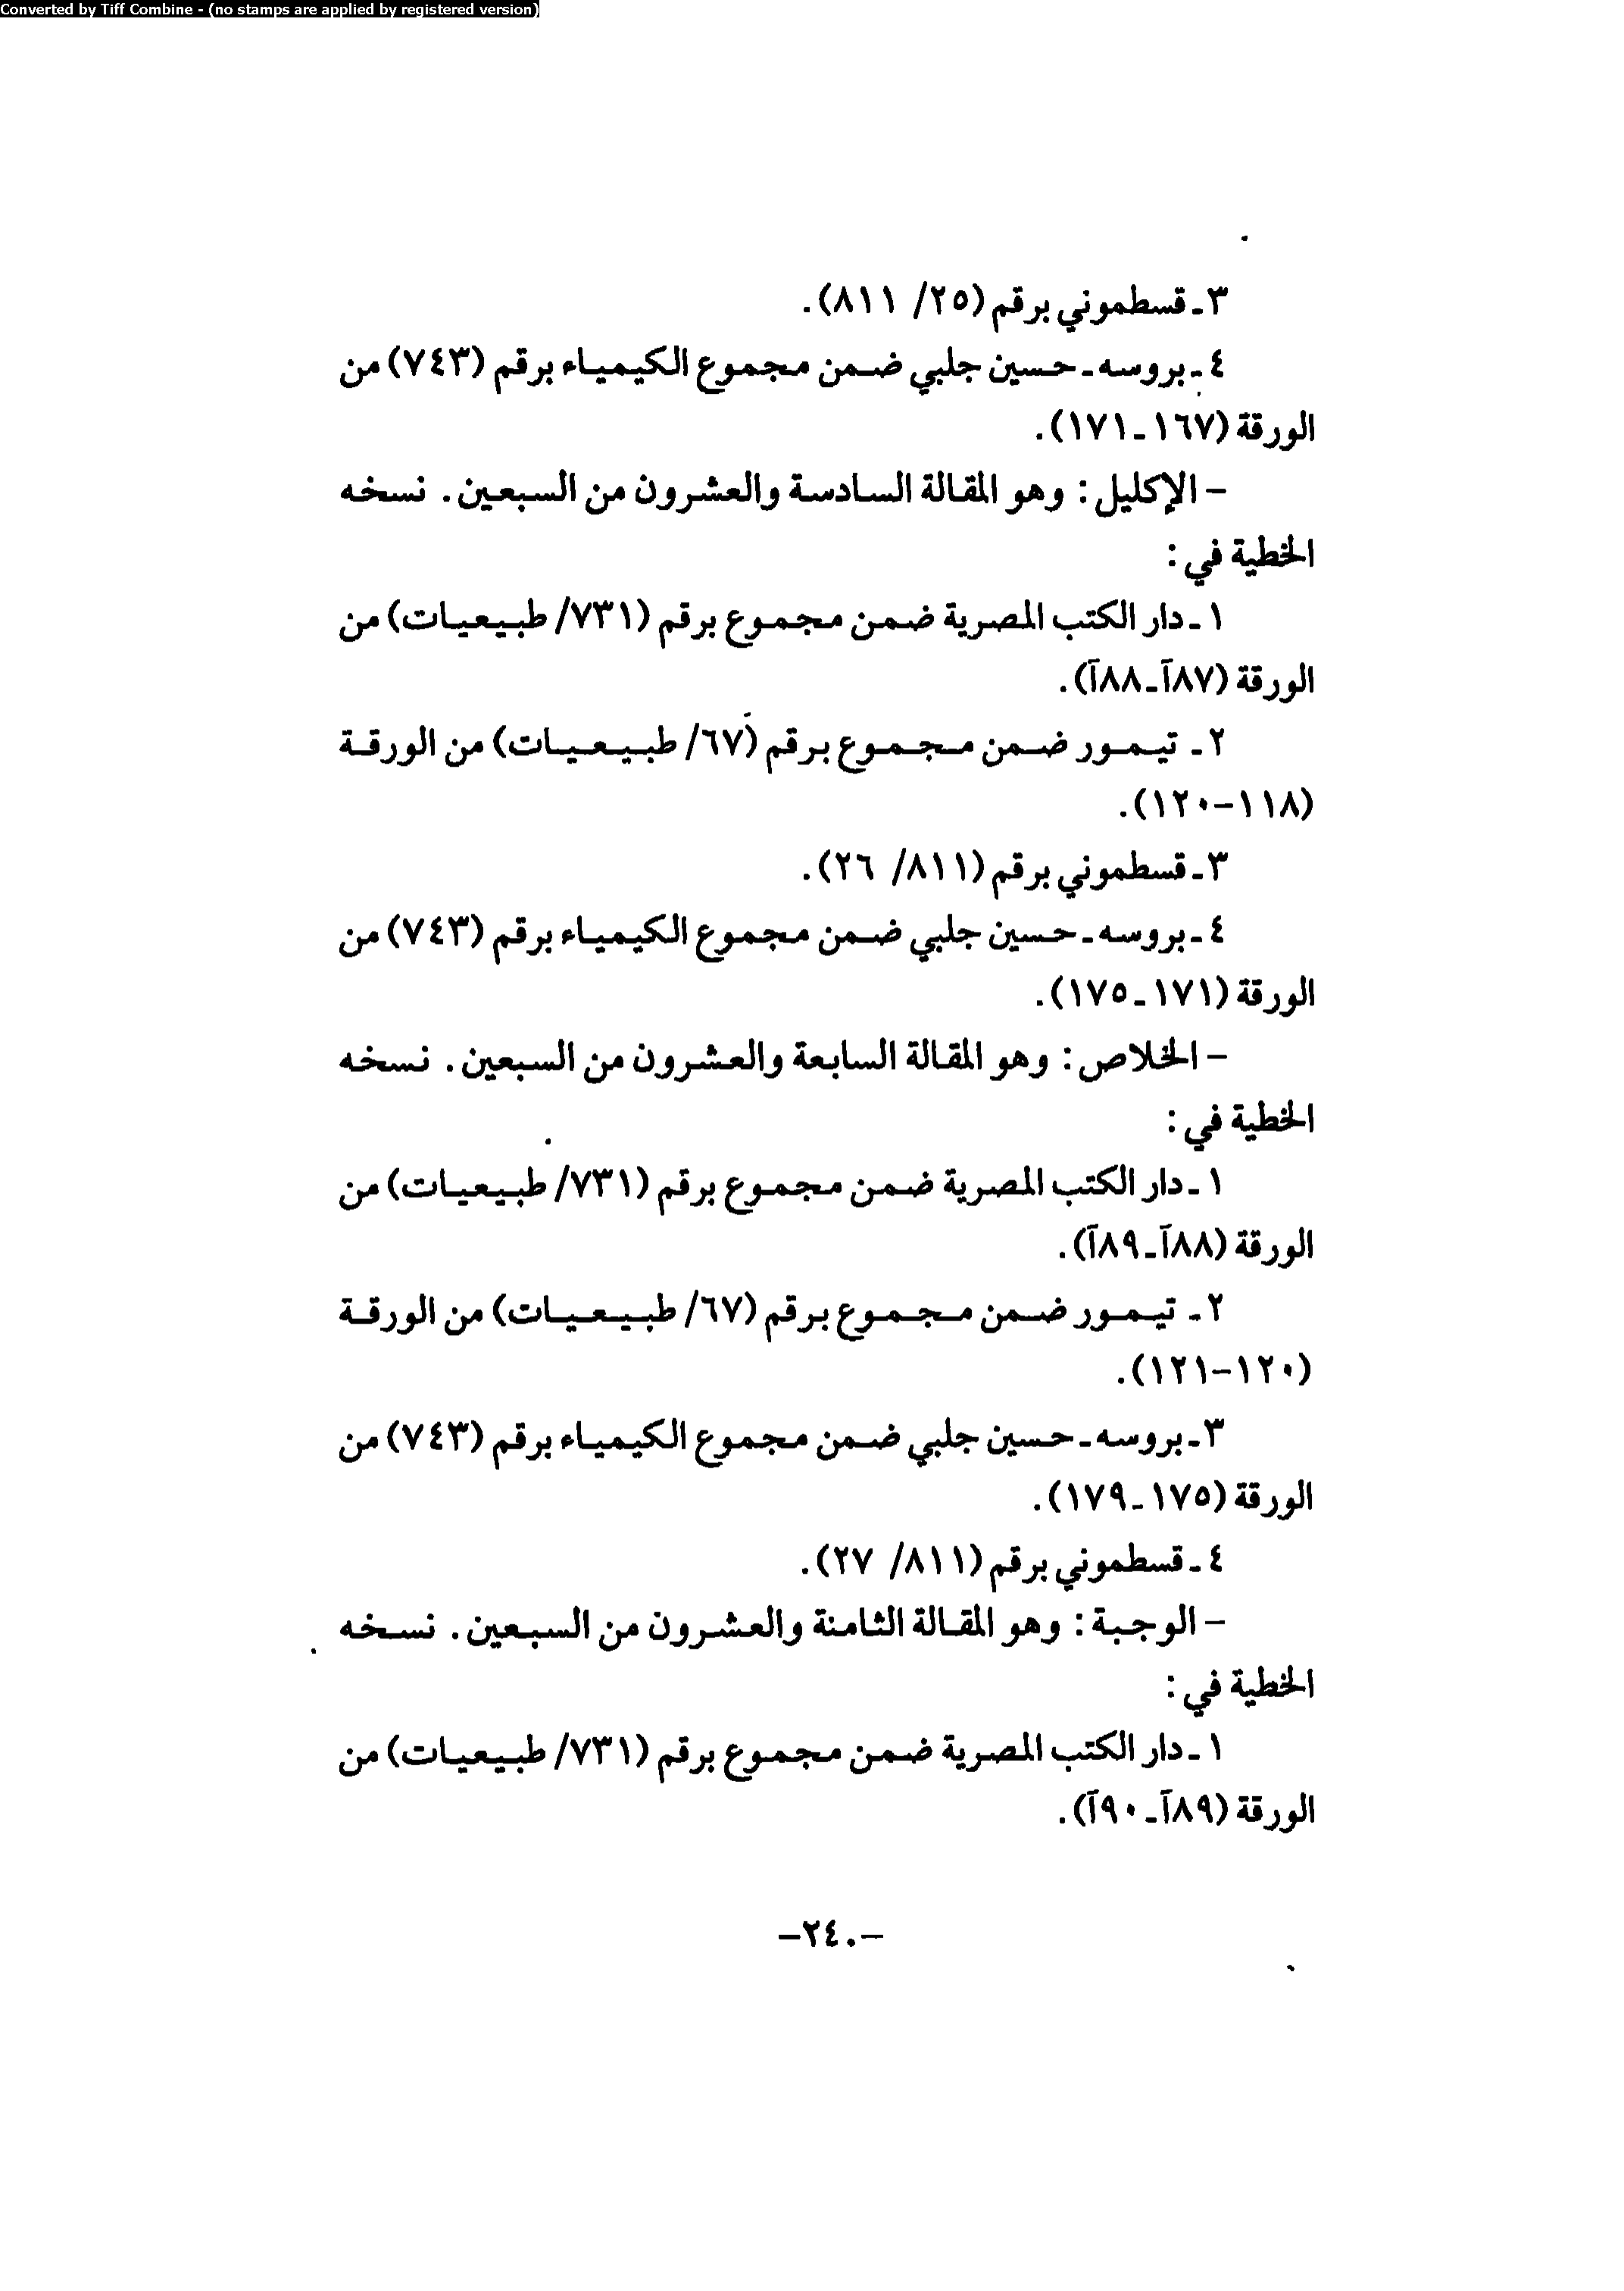 Converted by Tiff Combine - (no stamps are applied by registered version)
٣ـ قسطموني برقم (٢٥/ ٨١١).
٤ـ بروسه ـ حسين جلبي ضمن مجموع الكيمياء برقم (٧٤٣) من
الورقة (١٦٧ـ١٧١).
– الإكليل: وهو المقالة السادسة والعشرون من السبعين. نسخه
الخطية في:
١ـ دار الكتب المصرية ضمن مجموع برقم (٧٣١/ طبيعيات) من
الورقة (٨٧آـ٨٨آ).
٢ـ تيمور ضمن مجموع برقم (٦٧/ طبيعيات) من الورقة
(١١٨–١٢٠).
٣ـ قسطموني برقم (٨١١/ ٢٦).
٤ـ بروسه ـ حسين جلبي ضمن مجموع الكيمياء برقم (٧٤٣) من
الورقة (١٧١ـ١٧٥).
– الخلاص: وهو المقالة السابعة والعشرون من السبعين. نسخه
الخطية في:
١ـ دار الكتب المصرية ضمن مجموع برقم (٧٣١/ طبيعيات) من
الورقة (٨٨آـ٨٩آ).
٢ـ تيمور ضمن مجموع برقم (٦٧/ طبيعيات) من الورقة
(١٢٠–١٢١).
٣ـ بروسه ـ حسين جلبي ضمن مجموع الكيمياء برقم (٧٤٣) من
الورقة (١٧٥ـ١٧٩).
٤ـ قسطموني برقم (٨١١/ ٢٧).
– الوجبة: وهو المقالة الثامنة والعشرون من السبعين. نسخه
الخطية في:
١ـ دار الكتب المصرية ضمن مجموع برقم (٧٣١/ طبيعيات) من
الورقة (٨٩آـ٩٠آ).
–٢٤٠–